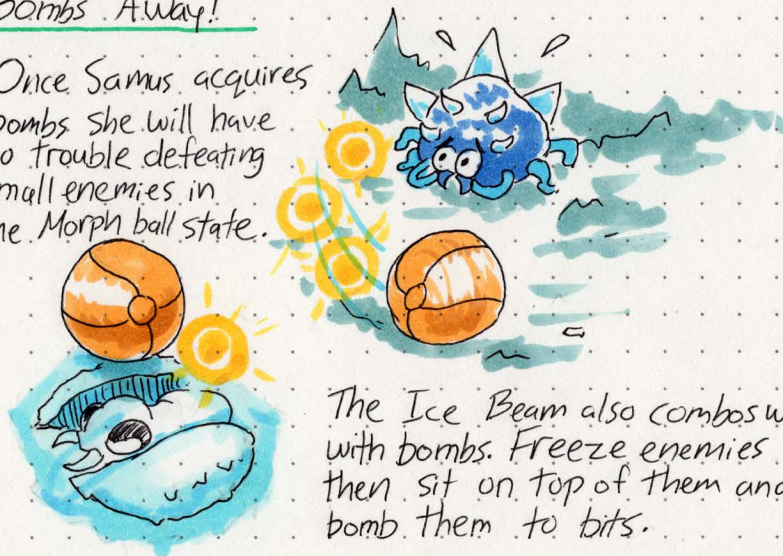 Bombs Away!
Once Samus acquires
bombs she will have
no trouble defeating
small enemies in
the Morph ball state.
The Ice Beam also combos
with bombs. Freeze enemies
then sit on top of them and
bomb them to bits.